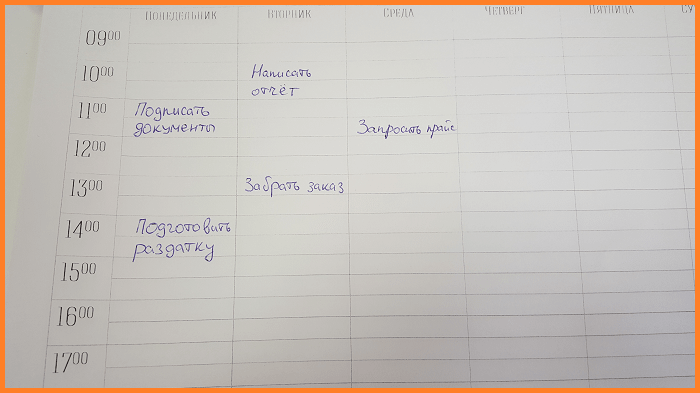 ПОНЕДЕЛЬНИК ВТОРНИК СРЕДА ЧЕТВЕРГ ПЯТНИЦА
09 00
10 00 Написать
отчёт
11 00 Подписать
документы Запросить прайс
12 00
13 00 Забрать заказ
14 00 Подготовить
раздатку
15 00
16 00
17 00